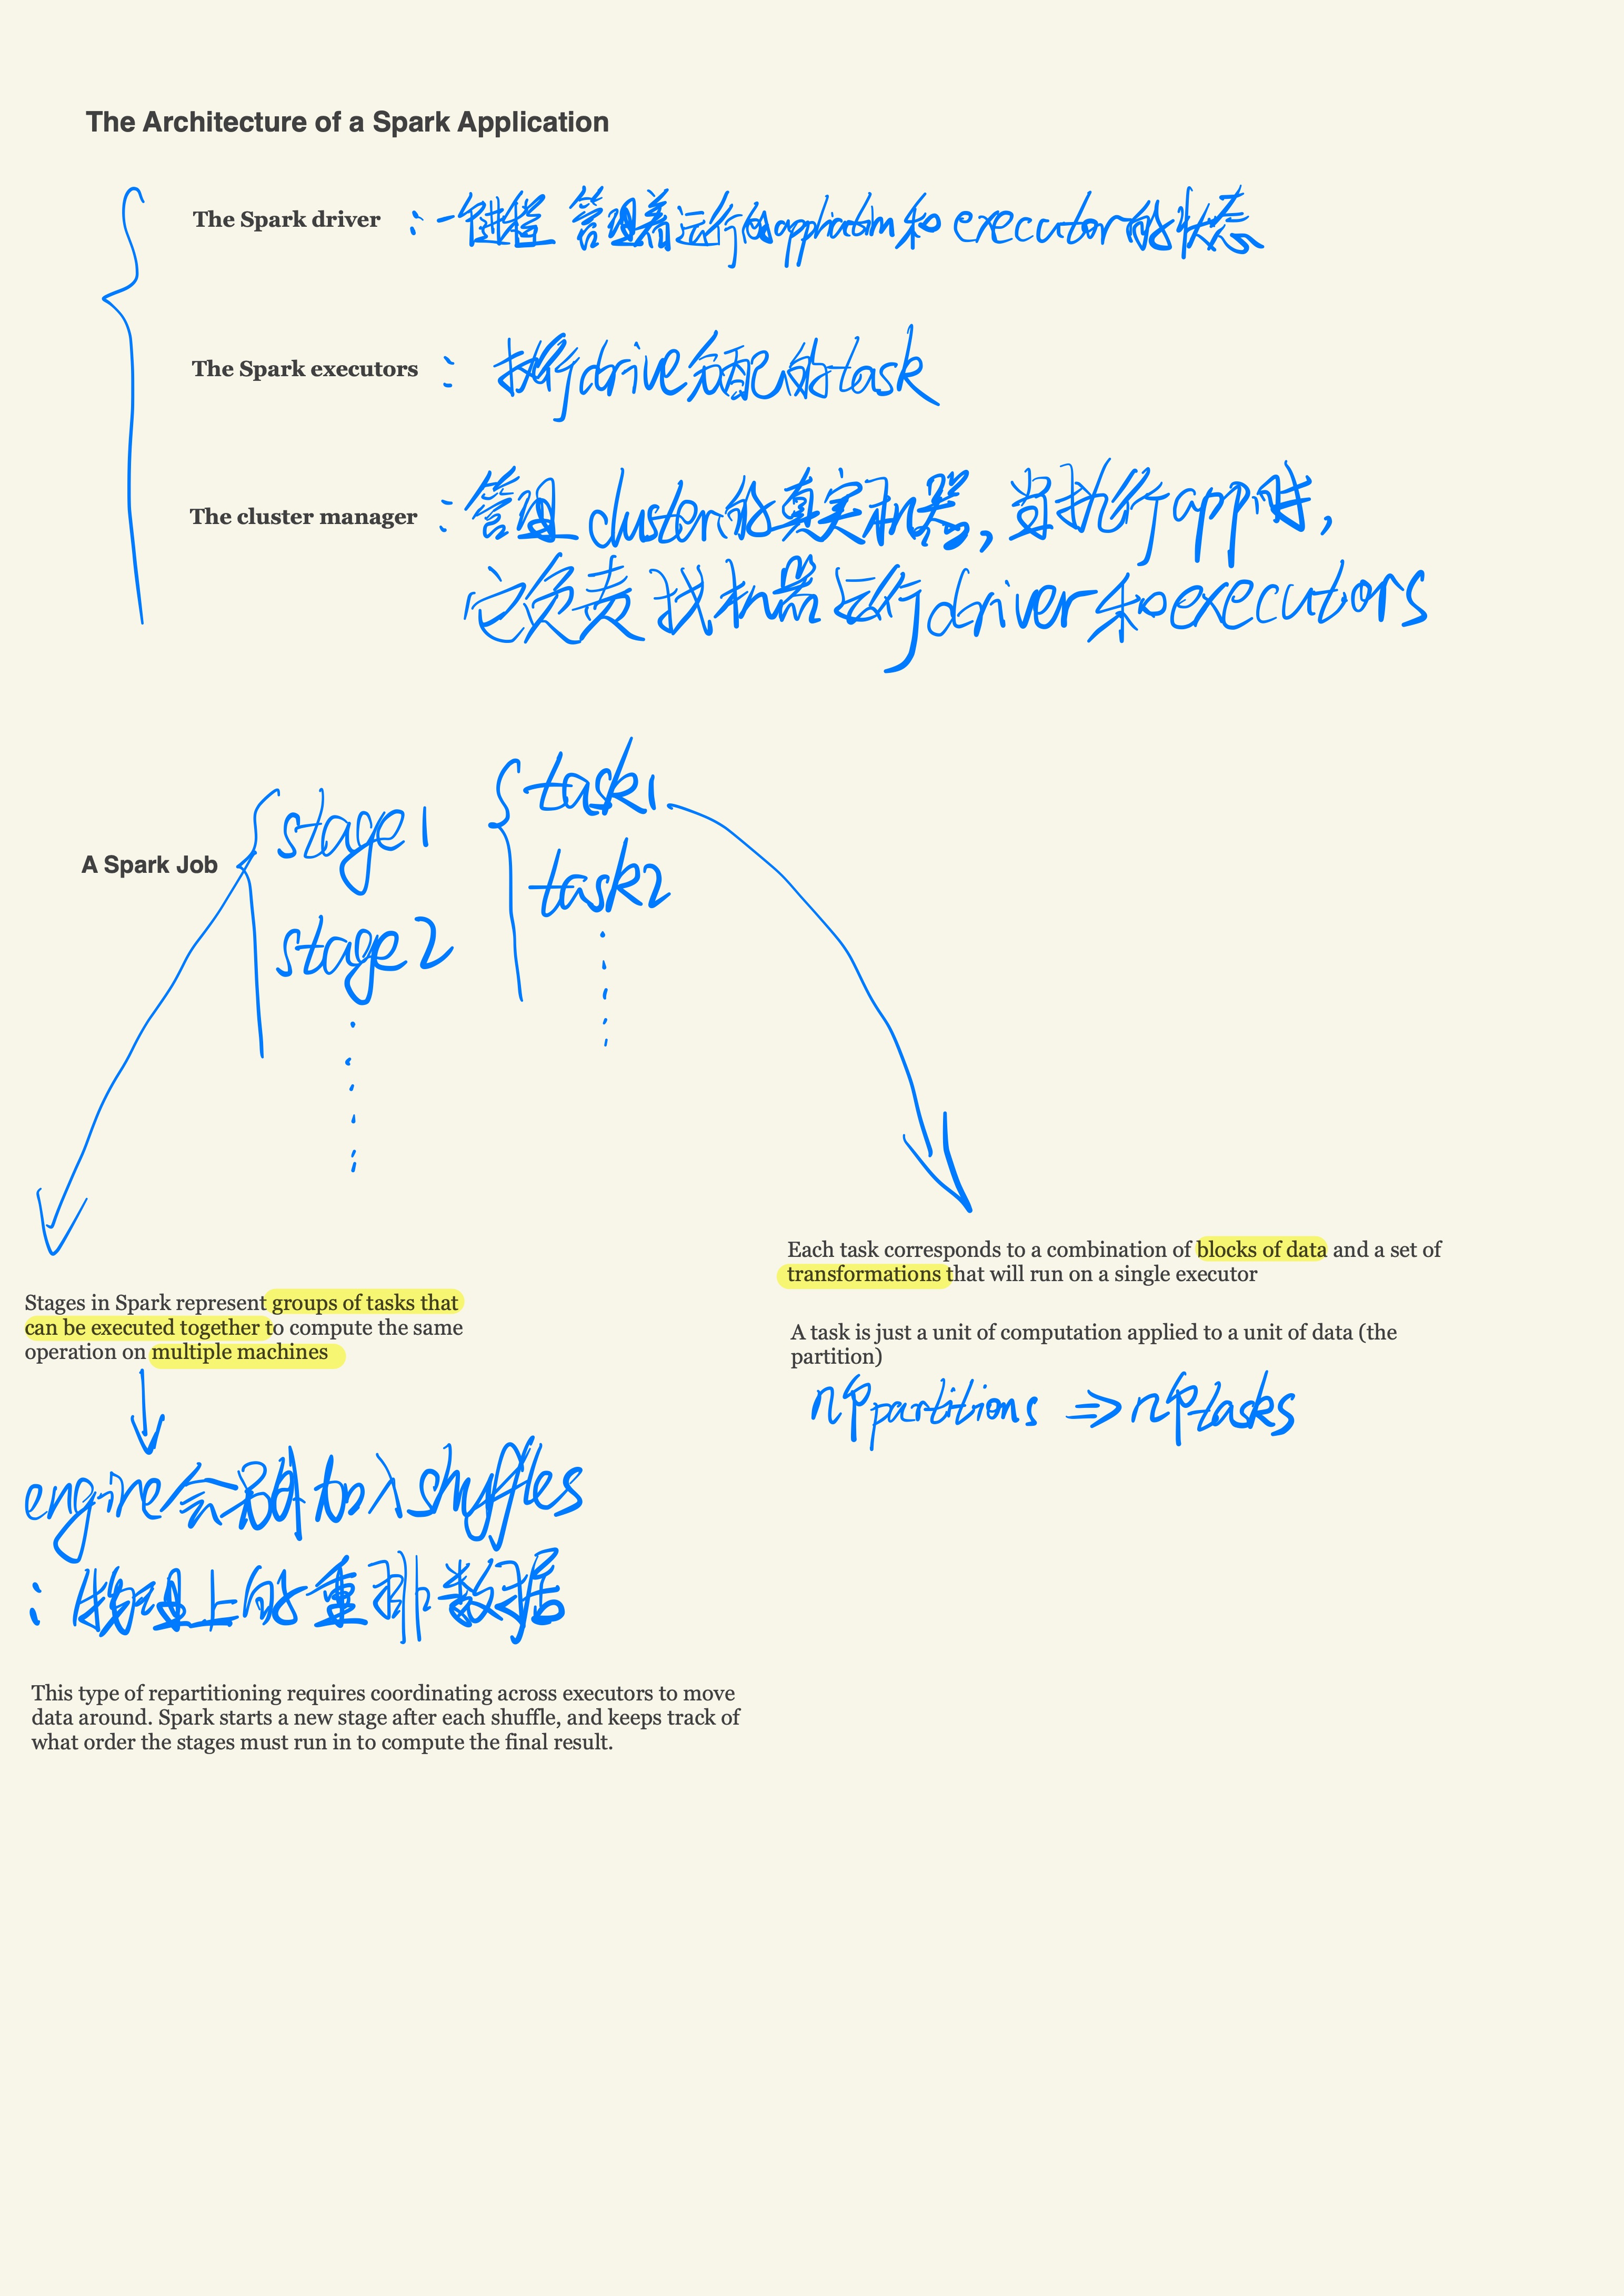 The Architecture of a Spark Application
The Spark driver ：一个进程 管理着运行的application和executor的状态
The Spark executors ： 执行drive分配的task
The cluster manager ：管理cluster的真实机器，当执行app时，
它负责找机器运行driver和executors
A Spark Job
stage1
stage2
task1
task2
Stages in Spark represent groups of tasks that
can be executed together to compute the same
operation on multiple machines
engine会 加入shuffles
：物理上的重排数据
This type of repartitioning requires coordinating across executors to move
data around. Spark starts a new stage after each shuffle, and keeps track of
what order the stages must run in to compute the final result.
Each task corresponds to a combination of blocks of data and a set of
transformations that will run on a single executor
A task is just a unit of computation applied to a unit of data (the
partition)
n个partitions ⇒ n个tasks